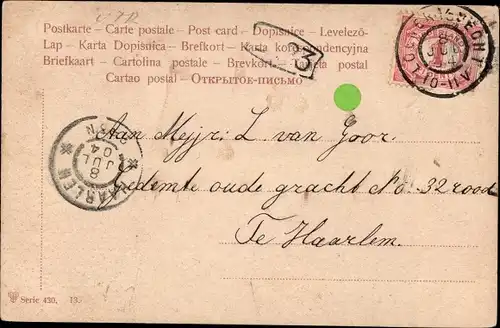 Postkarte - Carte postale - Post card - Dopisnice - Levelező-
Lap - Karta Dopisnica - Brefkort - Karta korespondencyjna
Briefkaart - Cartolina postale - Brevkort - Carta postal
Cartao postal - ОТКРЫТОЕ-ПИСЬМО
3
Aan Mejr: L. van Goor.
Gedemte oude gracht No. 32 rood
Te Haarlem.
HAARLEM
8 JUL
04
Serie 430. 13.